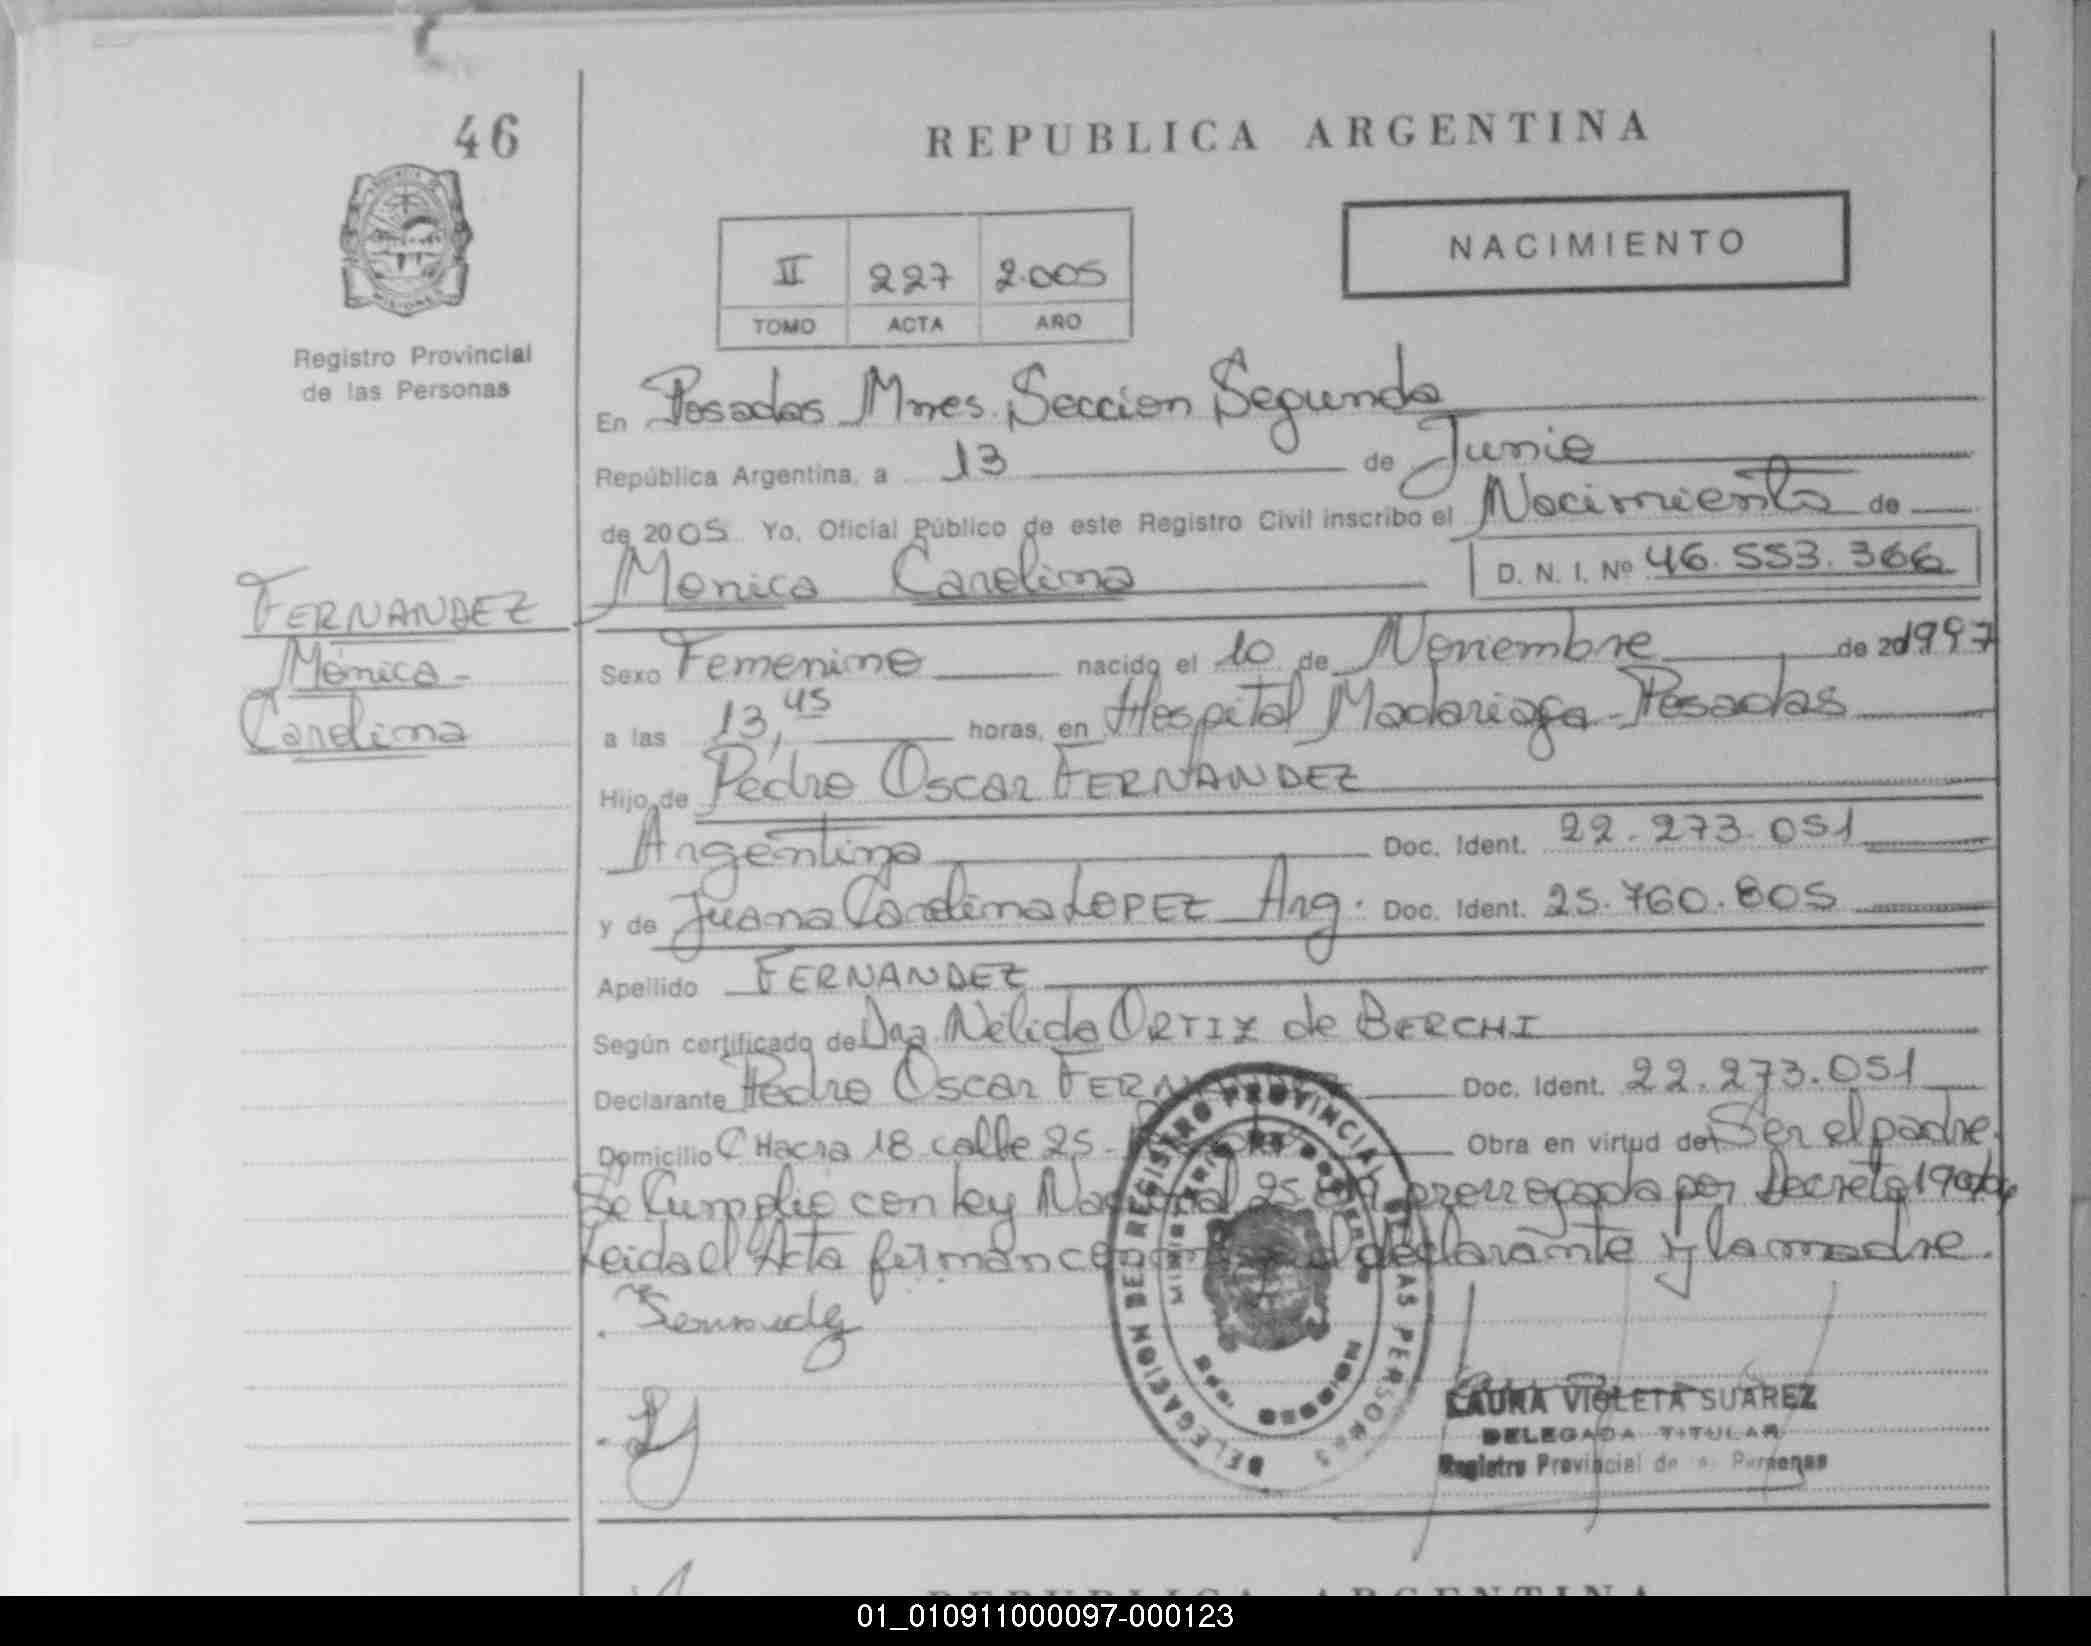 46
REPUBLICA ARGENTINA
NACIMIENTO
II 227 2.005
TOMO ACTA AÑO
Registro Provincial
de las Personas
En Posadas Mnes. Seccion Segunda
República Argentina, a 13 de Junio
de 2005. Yo, Oficial Público de este Registro Civil inscribo el Nacimiento de
Monica Carolina D. N. I. Nº 46.553.366
FERNANDEZ
Mónica
Carolina
Sexo Femenino nacido el 10 de Noviembre de 201997
a las 13,45 horas, en Hospital Madariaga - Posadas
Hijo de Pedro Oscar FERNANDEZ
Argentina Doc. Ident. 22.273.051
y de Juana Carolina LOPEZ Arg. Doc. Ident. 25.760.805
Apellido FERNANDEZ
Según certificado de Dña. Nélida ORTIZ de BERCHI
Declarante Pedro Oscar FERNANDEZ Doc. Ident. 22.273.051
Domicilio CHacra 18 calle 25 - Obra en virtud de Ser el padre.
Se Cumplio con ley Nacional prorrogada por Decreto
Leida el Acta firman el declarante y la madre.
DELEGACION DEL REGISTRO PROVINCIAL DE LAS PERSONAS
LAURA VIOLETA SUAREZ
DELEGADA TITULAR
Registro Provincial de Personas
REPUBLICA ARGENTINA
01_010911000097-000123